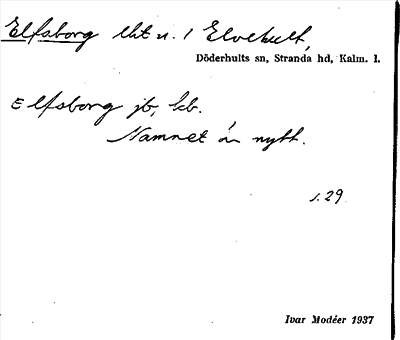 Elfsborg lht u. 1 Elvehult,
Döderhults sn, Stranda hd, Kalm. l.
Elfsborg jb, kb.
Namnet är nytt.
s. 29
Ivar Modéer 1937